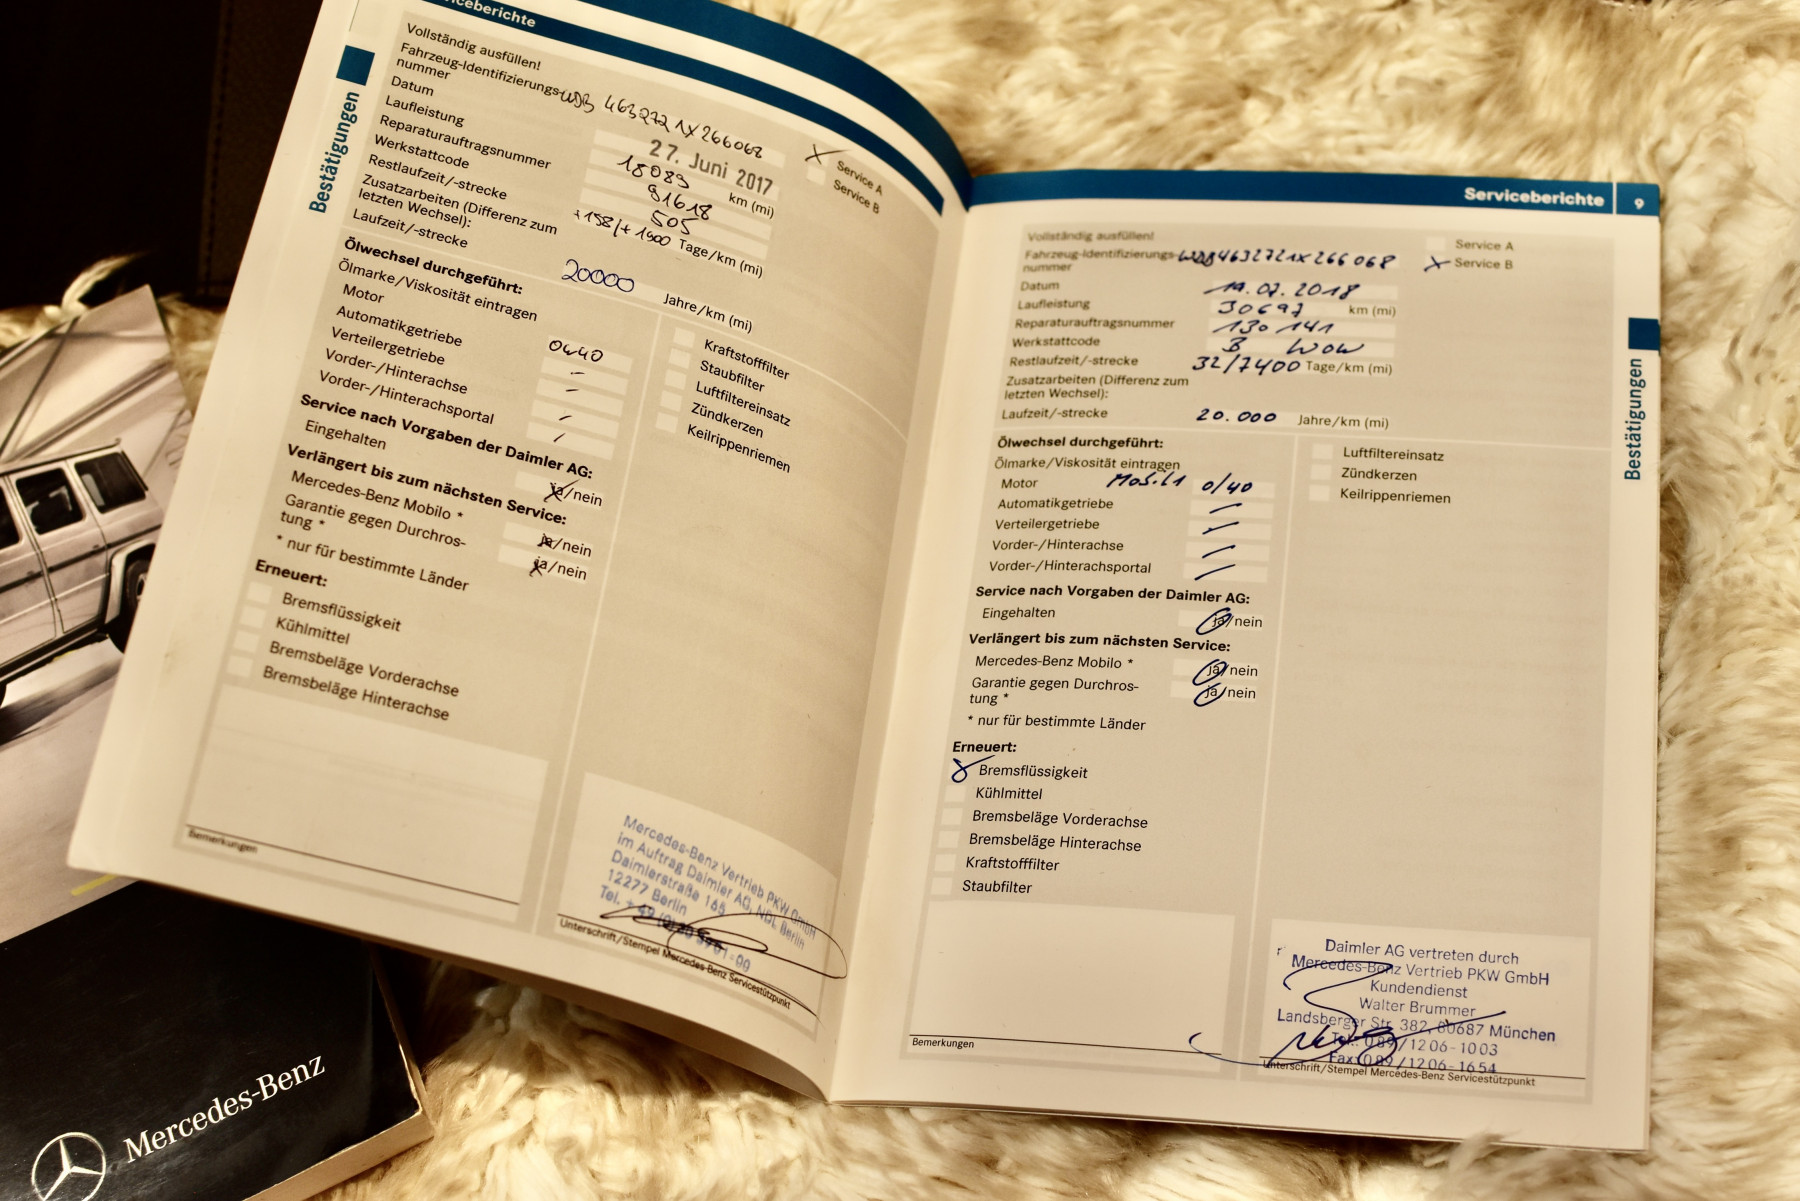 Serviceberichte
Bestätigungen
Vollständig ausfüllen!
Fahrzeug-Identifizierungs-
nummer WDB 463272 1X 266068
Datum 27. Juni 2017
Laufleistung 18089 km (mi)
Reparaturauftragsnummer 91618
Werkstattcode 505
Restlaufzeit/-strecke +158/+1900 Tage/km (mi)
Zusatzarbeiten (Differenz zum
letzten Wechsel):
Laufzeit/-strecke 20000 Jahre/km (mi)
X Service A
Service B
Ölwechsel durchgeführt:
Ölmarke/Viskosität eintragen
Motor 0w40
Automatikgetriebe -
Verteilergetriebe -
Vorder-/Hinterachse -
Vorder-/Hinterachsportal -
Service nach Vorgaben der Daimler AG:
Eingehalten ja/nein
Verlängert bis zum nächsten Service:
Mercedes-Benz Mobilo * ja/nein
Garantie gegen Durchros-
tung * ja/nein
* nur für bestimmte Länder
Erneuert:
Bremsflüssigkeit
Kühlmittel
Bremsbeläge Vorderachse
Bremsbeläge Hinterachse
Kraftstofffilter
Staubfilter
Luftfiltereinsatz
Zündkerzen
Keilrippenriemen
Bemerkungen
Mercedes-Benz Vertrieb PKW GmbH
im Auftrag Daimler AG, NDL Berlin
Daimlerstraße 165
12277 Berlin
Tel. +49 (0)30 3901-00
Unterschrift/Stempel Mercedes-Benz Servicestützpunkt
Serviceberichte 9
Bestätigungen
Vollständig ausfüllen!
Fahrzeug-Identifizierungs-
nummer WDB4632721X266068
Datum 19.07.2018
Laufleistung 30697 km (mi)
Reparaturauftragsnummer 130 141
Werkstattcode B WOW
Restlaufzeit/-strecke 32/7400 Tage/km (mi)
Zusatzarbeiten (Differenz zum
letzten Wechsel):
Laufzeit/-strecke 20.000 Jahre/km (mi)
Service A
X Service B
Ölwechsel durchgeführt:
Ölmarke/Viskosität eintragen
Motor Mobil 1 0/40
Automatikgetriebe -
Verteilergetriebe -
Vorder-/Hinterachse -
Vorder-/Hinterachsportal -
Service nach Vorgaben der Daimler AG:
Eingehalten ja/nein
Verlängert bis zum nächsten Service:
Mercedes-Benz Mobilo * ja/nein
Garantie gegen Durchros-
tung * ja/nein
* nur für bestimmte Länder
Erneuert:
Bremsflüssigkeit
Kühlmittel
Bremsbeläge Vorderachse
Bremsbeläge Hinterachse
Kraftstofffilter
Staubfilter
Luftfiltereinsatz
Zündkerzen
Keilrippenriemen
Bemerkungen
Daimler AG vertreten durch
Mercedes-Benz Vertrieb PKW GmbH
Kundendienst
Walter Brummer
Landsberger Str. 382, 80687 München
Tel.: 089/1206-1003
Fax: 089/1206-1654
Unterschrift/Stempel Mercedes-Benz Servicestützpunkt
Mercedes-Benz